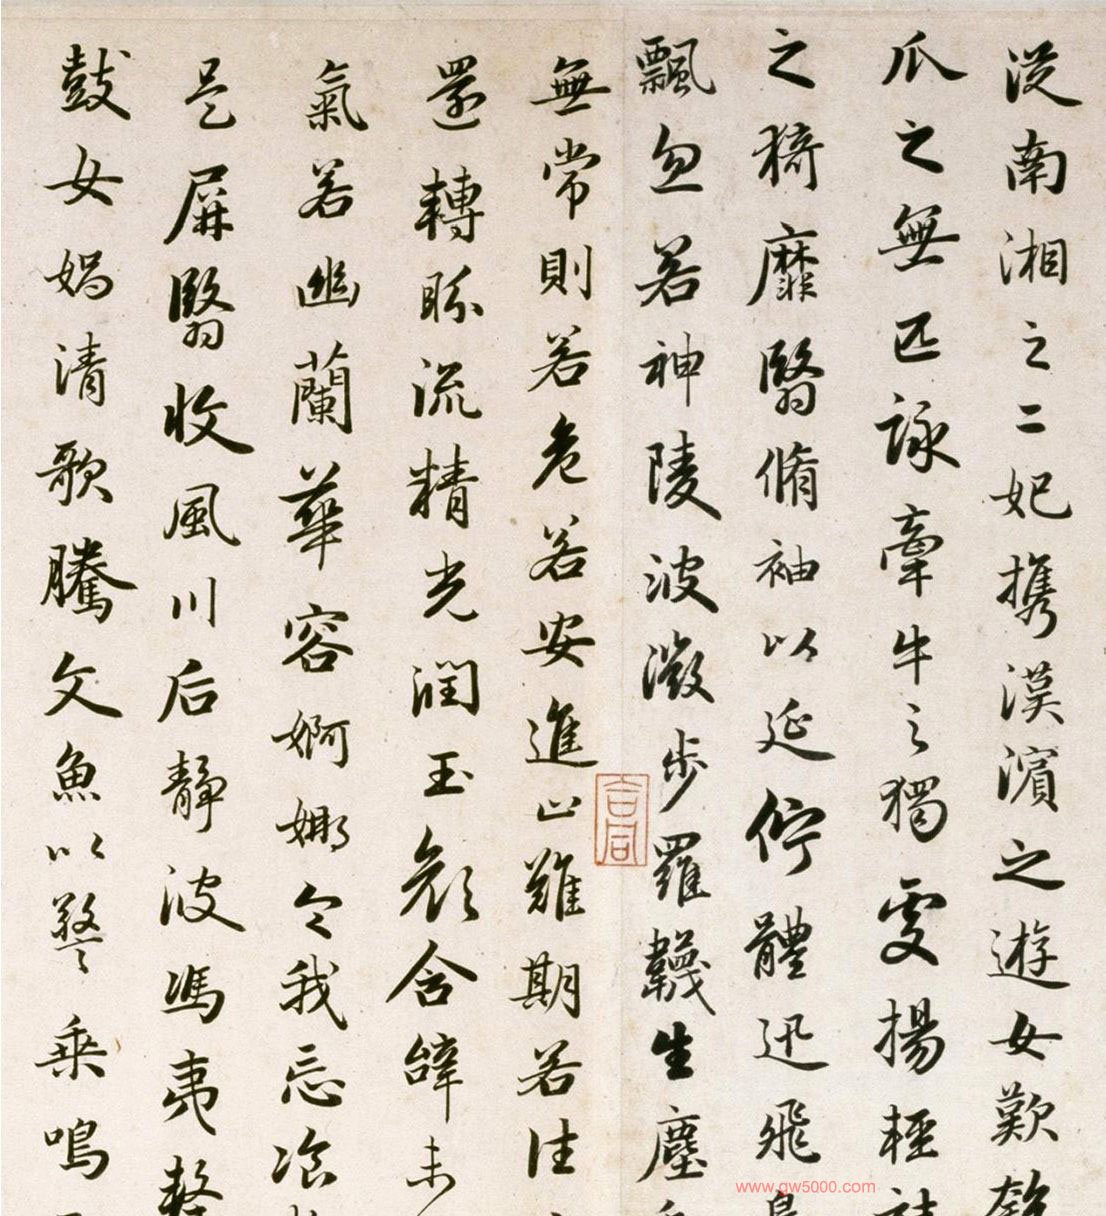 從南湘之二妃携漢濱之遊女歎
爪之無匹詠牽牛之獨處揚輕
之猗靡翳脩袖以延佇體迅飛
飄忽若神陵波微步羅韈生塵
無常則若危若安進止難期若往
還轉眄流精光潤玉顏含辭未
氣若幽蘭華容婀娜令我忘飡
是屏翳收風川后靜波馮夷擊
鼓女媧清歌騰文魚以警乘鳴
www.gw5000.com